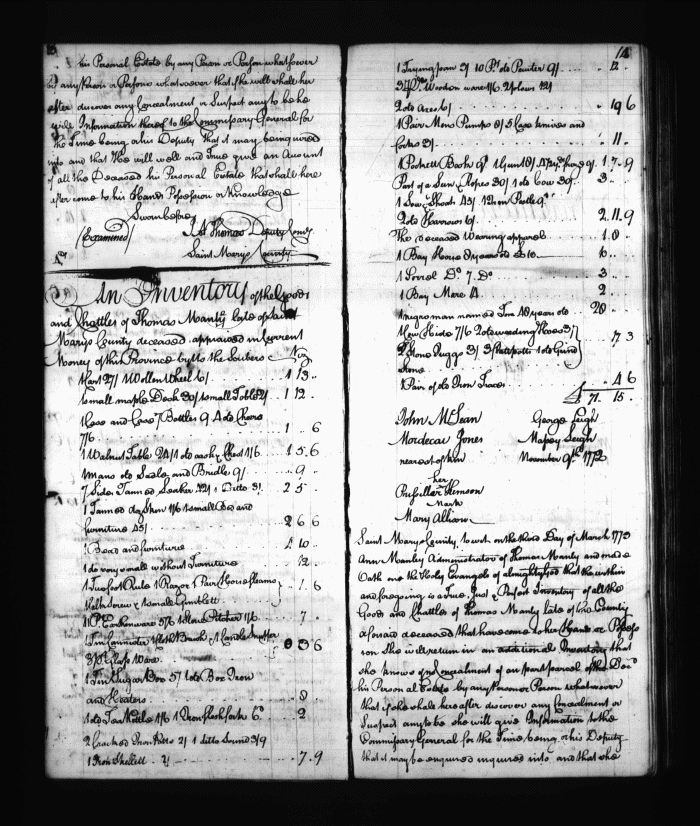 his Personal Estate by any Person or Persons whatsoever
by any Person or Persons whatsoever that if he will shall her
after discover any Concealment or Suspect any to be he
will give Information thereof to the Commissary General for
the Time being or his Deputy that it may be enquired
into and that He will well and True give an Account
of all the Deceased his Personal Estate that shall here
after come to his Hands Possession or Knowledge
Sworn before
(Examined) Thomas Deputy Comy
Saint Marys County
An Inventory of the Goods
and Chattles of Thomas Manty late of Saint
Marys County deceased appraised in Current
Money of this Province by the Subscribers
1 Cart 27/ 1 Wollen Wheel 6/ 1 13 ..
1 small maple Desk 30/ 1 small Table 2/ 1 12 ..
1 Case and Case 7 Bottles 9 4 old Chairs
7/6 1 .. 6
1 Walnut Table 24/ 1 old Chest 1/6 1 5 6
1 mans old Sadle and Bridle 9/ .. 9 ..
7 Sides Tanned Leather 42/ 1 Ditto 3/ 2 5 ..
1 Tanned dog Skin 1/6 1 small Bed and
furniture 45/ 2 6 6
1 Bed and furniture 4 10 ..
1 do very small without Furniture .. 12 ..
1 Two foot Rule 1 Razor 1 Pair Horse fleams
1 small Gimblett .. 1 6
Earthenware 5/6 1 Stone Pitcher 1/6 .. 7 ..
1 Tin Cannister 1 Cloth Brush 1 Candle Snuffer
Glass Ware 3 6
1 Tin Sugar Box 5/ 1 old Box Iron
and Heaters 8
1 old Tea Kettle 1/6 1 Iron flesh fork 6d 2
2 Cracked Iron Pots 2/ 1 ditto Sound 3/9
1 Iron Skillett 2/ .. 7 .. 9
14
1 Frying pan 3/ 10 Pts old Pewter 9/ .. 12 ..
Wooden ware 1/6 2 plows 12/
2 old Axes 6/ .. 19 6
1 Pair Mens Pumps 8/ 5 Case knives and
forks 3/ .. 11 ..
1 Pockett Book 1 .. 7 .. 9
Part of a 1 old Cow 30/ 3 ..
1 Sow 4 Shoats 45/
2 old Harrows 6/ 2 .. 11 .. 9
The deceased Wearing apparel 1 .. 0
1 Bay Horse 8 years old £10 10 ..
1 Sorrel Do 7 Do 3 ..
1 Bay Mare 2 ..
1 negro man named Jim 18 years old 20 ..
1 Cow Hide 7/6 2 old weeding Hoes 3/
2 Stone Juggs 3/ 1 old Grind
Stone .. 7 3
1 Pair of old Iron Traces .. 4 6
£ 71 .. 15 ..
John McLean George Leigh
Mordecai Jones Massey Leigh
nearest of kin November 9th 1772
her
Prisciller Hinson
mark
Mary Allison
Saint Marys County, to wit on the third Day of March 1773
Ann Manty Administrator of Thomas Manty and made
Oath one the Holy Evangels of almighty God that the within
and foregoing is a True Just & Perfect Inventory of all the
Goods and Chattles of Thomas Manty late of the County
aforesaid deceased that have come to her Hands or Posses
sion she will return in an additional Inventory that
she knows of no Concealment of any part parcel of the Decd
his Personal Estate by any Person or Person whatsoever
that if she shall hereafter discover any Concealment or
Suspect any to be she will give Information to the
Commissary General for the Time being or his Deputy
that it may be enquired inquires into, and that she